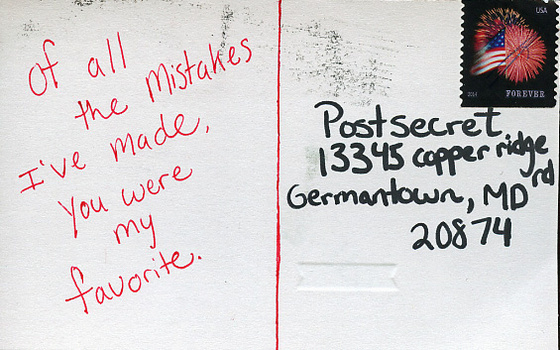 Of all
the Mistakes
I've made,
you were
my
favorite.
USA
2014 FOREVER
Postsecret
13345 copper ridge
rd
Germantown, MD
20874